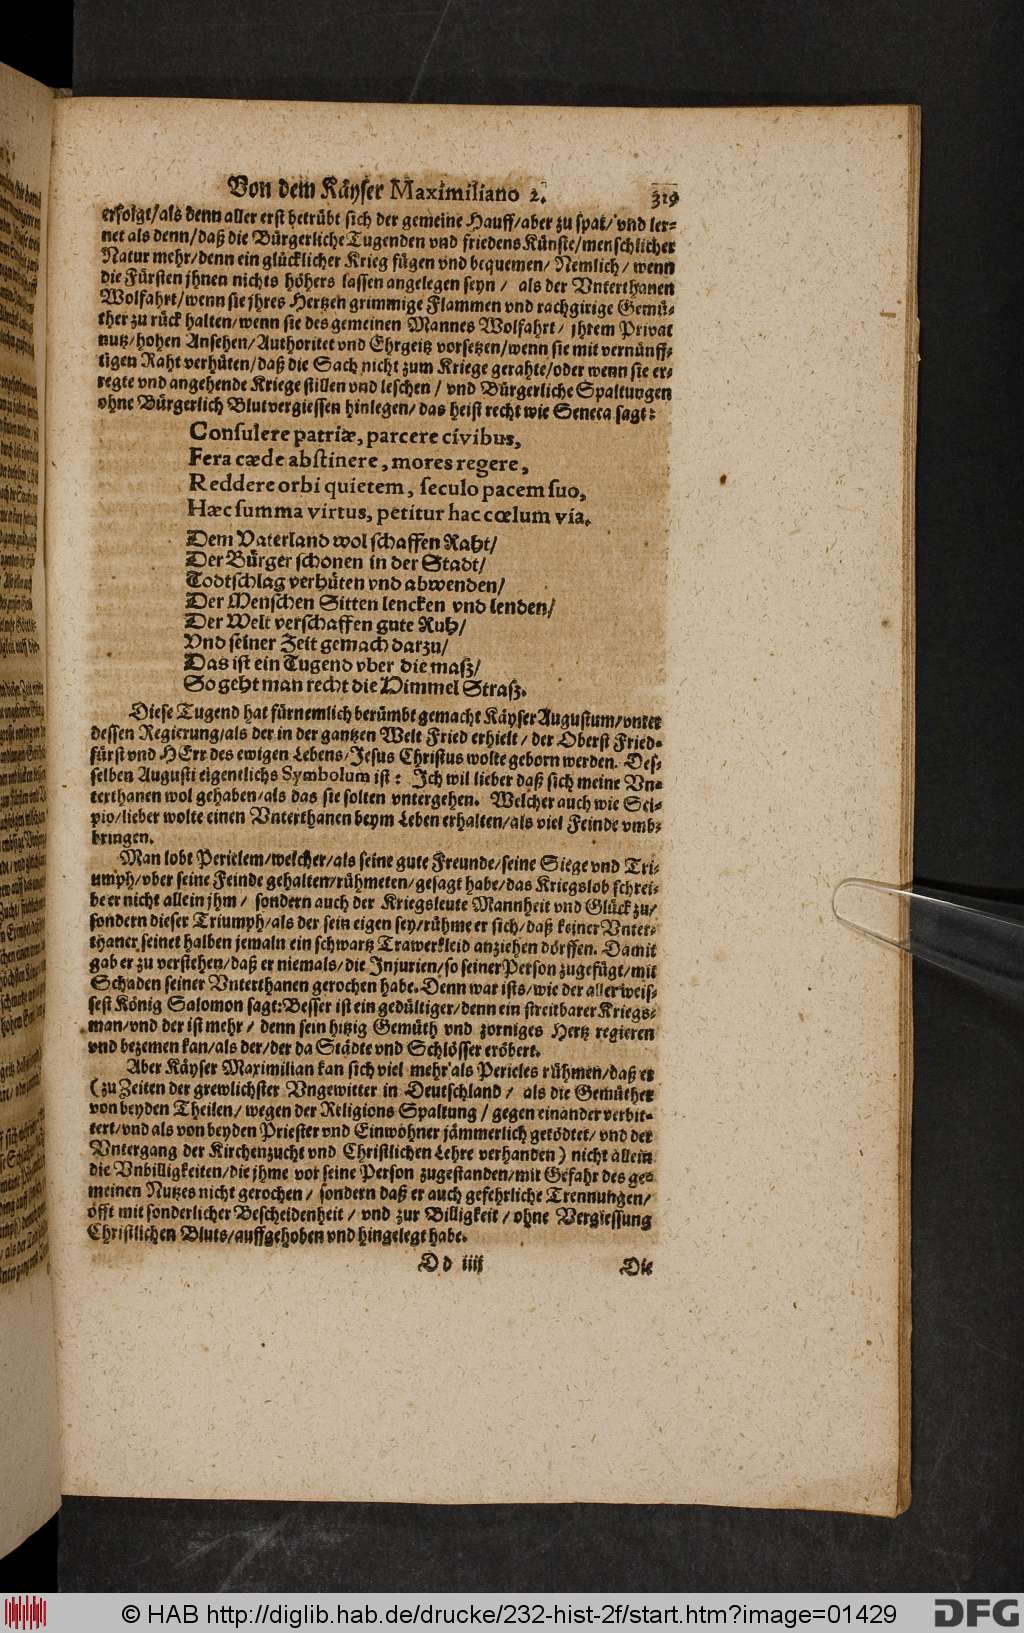 Von dem Käyser Maximiliano 2. 319
erfolgt/als denn aller erst betrübt sich der gemeine Hauff/aber zu spat/vnd ler-
net als denn/daß die Bürgerliche Tugenden vnd friedens Künste/menschlicher
Natur mehr/denn ein glücklicher Krieg fügen vnd bequemen/ Nemlich/ wenn
die Fürsten jhnen nichts höhers lassen angelegen seyn/ als der Vnterthanen
Wolfahrt/wenn sie jhres Hertzen grimmige Flammen vnd rachgirige Gemü-
ther zu rück halten/wenn sie des gemeinen Mannes Wolfahrt/ jhrem Privat
nutz/hohen Ansehen/Authoritet vnd Ehrgeitz vorsetzen/wenn sie mit vernünff-
tigen Raht verhüten/daß die Sach nicht zum Kriege gerahte/oder wenn sie er-
regte vnd angehende Kriege stillen vnd leschen/ vnd Bürgerliche Spaltungen
ohne Bürgerlich Blutvergiessen hinlegen/das heist recht wie Seneca sagt:
Consulere patriæ, parcere civibus,
Fera cæde abstinere, mores regere,
Reddere orbi quietem, seculo pacem suo,
Hæc summa virtus, petitur hac cœlum via.
Dem Vaterland wol schaffen Raht/
Der Bürger schonen in der Stadt/
Todtschlag verhüten vnd abwenden/
Der Menschen Sitten lencken vnd lenden/
Der Welt verschaffen gute Ruh/
Vnd seiner Zeit gemach darzu/
Das ist ein Tugend vber die maß/
So geht man recht die Himmel Straß.
Diese Tugend hat fürnemlich berümbt gemacht Käyser Augustum/vnter
dessen Regierung/als der in der gantzen Welt Fried erhielt/ der Oberst Fried-
fürst vnd HErr des ewigen Lebens/Jesus Christus wolte geborn werden. Des-
selben Augusti eigentlichs Symbolum ist: Ich wil lieber daß sich meine Vn-
terthanen wol gehaben/als das sie solten vntergehen. Welcher auch wie Sci-
pio/lieber wolte einen Vnterthanen beym Leben erhalten/als viel Feinde vmb-
bringen.
Man lobt Periclem/welcher/als seine gute Freunde/seine Siege vnd Tri-
umph/vber seine Feinde gehalten/rühmeten/gesagt habe/das Kriegslob schrei-
be er nicht allein jhm/ sondern auch der Kriegsleute Mannheit vnd Glück zu/
sondern dieser Triumph/als der sein eigen sey/rühme er sich/daß keiner Vnter-
thaner seinet halben jemaln ein schwartz Trawerkleid anziehen dörffen. Damit
gab er zu verstehen/daß er niemals/die Injurien/so seiner Person zugefügt/mit
Schaden seiner Vnterthanen gerochen habe. Denn war ists/wie der allerweis-
sest König Salomon sagt: Besser ist ein gedültiger/denn ein streitbarer Kriegs-
man/vnd der ist mehr/ denn sein hitzig Gemüth vnd zorniges Hertz regieren
vnd bezemen kan/als der/der da Städte vnd Schlösser eröbert.
Aber Käyser Maximilian kan sich viel mehr als Pericles rühmen/daß er
(zu Zeiten der grewlichster Vngewitter in Deutschland/ als die Gemüther
von beyden Theilen/wegen der Religions Spaltung/gegen einander verbit-
tert/vnd als von beyden Priester vnd Einwohner jämmerlich getödtet/vnd der
Vntergang der Kirchenzucht vnd Christlichen Lehre verhanden) nicht allein
die Vnbilligkeiten/die jhme vor seine Person zugestanden/mit Gefahr des ge-
meinen Nutzes nicht gerochen/ sondern daß er auch gefehrliche Trennungen/
öfft mit sonderlicher Bescheidenheit/ vnd zur Billigkeit/ohne Vergiessung
Christlichen Bluts/auffgehoben vnd hingelegt habe.
Dd iiij Die
© HAB http://diglib.hab.de/drucke/232-hist-2f/start.htm?image=01429
DFG